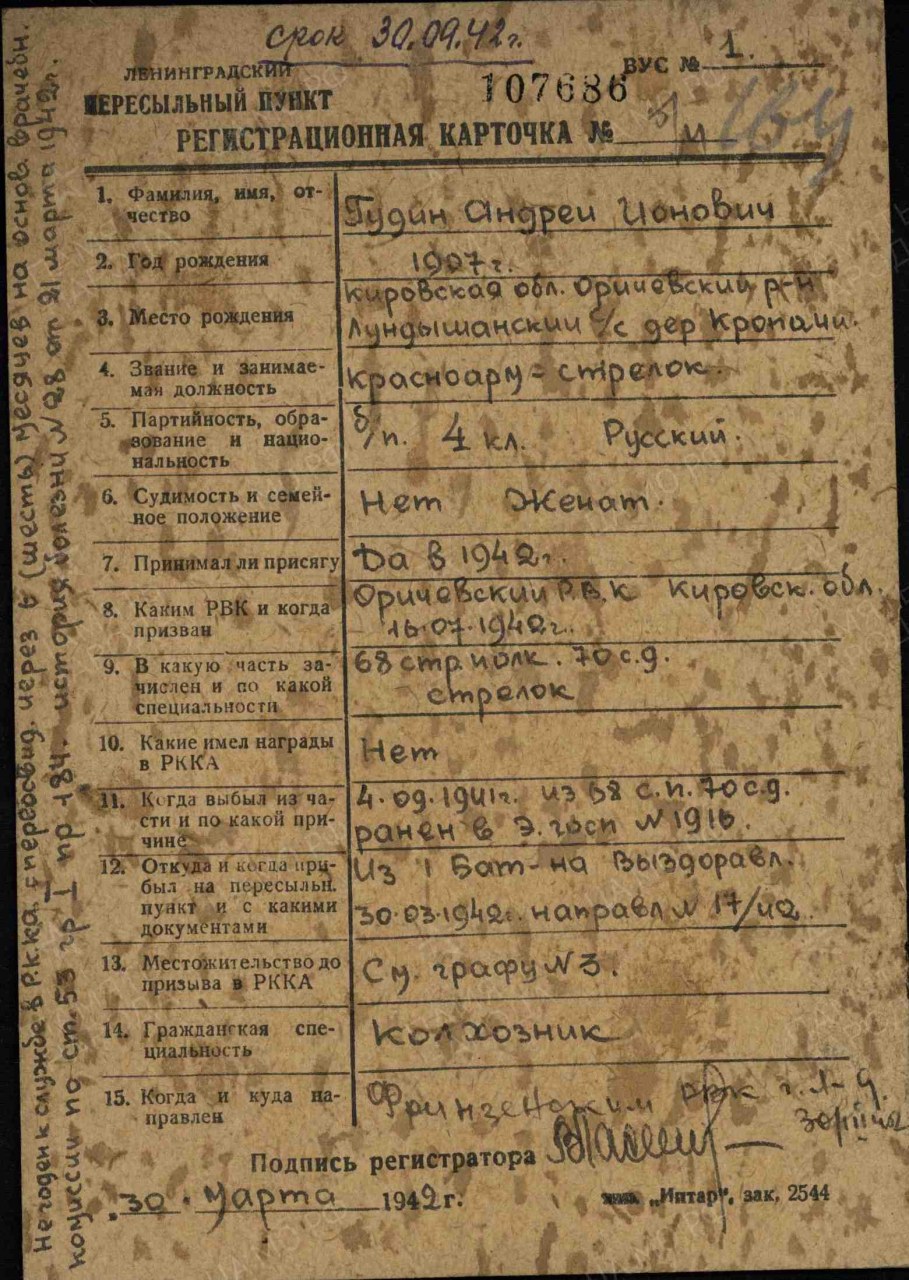 срок 30.09.42г.
ЛЕНИНГРАДСКИЙ
ВУС № 1.
ПЕРЕСЫЛЬНЫЙ ПУНКТ
107686
РЕГИСТРАЦИОННАЯ КАРТОЧКА №
1. Фамилия, имя, от-
чество
Гудин Андреи Ионович
2. Год рождения
1907г.
3. Место рождения
Кировская обл. Оричевский р-н
Лундышанский с/с дер Кропачи.
4. Звание и занимае-
мая должность
Красноарм = стрелок.
5. Партийность, обра-
зование и нацио-
нальность
б/п. 4 кл. Русский.
6. Судимость и семей-
ное положение
Нет Женат.
7. Принимал ли присягу
Да в 1942г.
8. Каким РВК и когда
призван
Оричевский Р.В.К Кировск. обл.
16.07.1942г.
9. В какую часть за-
числен и по какой
специальности
68 стр полк. 70 с.д.
стрелок
10. Какие имел награды
в РККА
Нет
11. Когда выбыл из ча-
сти и по какой при-
чине
4.09.1941г. из 68 с.п. 70 с.д.
ранен в Э. госп N 1916.
12. Откуда и когда при-
был на пересыльн.
пункт и с какими
документами
Из 1 Бат-на Выздоравл.
30.03.1942г. направл N 17/42.
13. Местожительство до
призыва в РККА
См. графу N 3.
14. Гражданская спе-
циальность
Колхозник
15. Когда и куда на-
правлен
РВК г. Л-д
Подпись регистратора
30. марта 1942 г.
„Интар", зак. 2544
Негоден к службе в Р.К.К.А. с переосвид. через 6 (шесть) месяцев на основ. врачебн.
комиссии по ст. 53 гр I пр 184. история болезни N 28 от 21 марта 1942г.